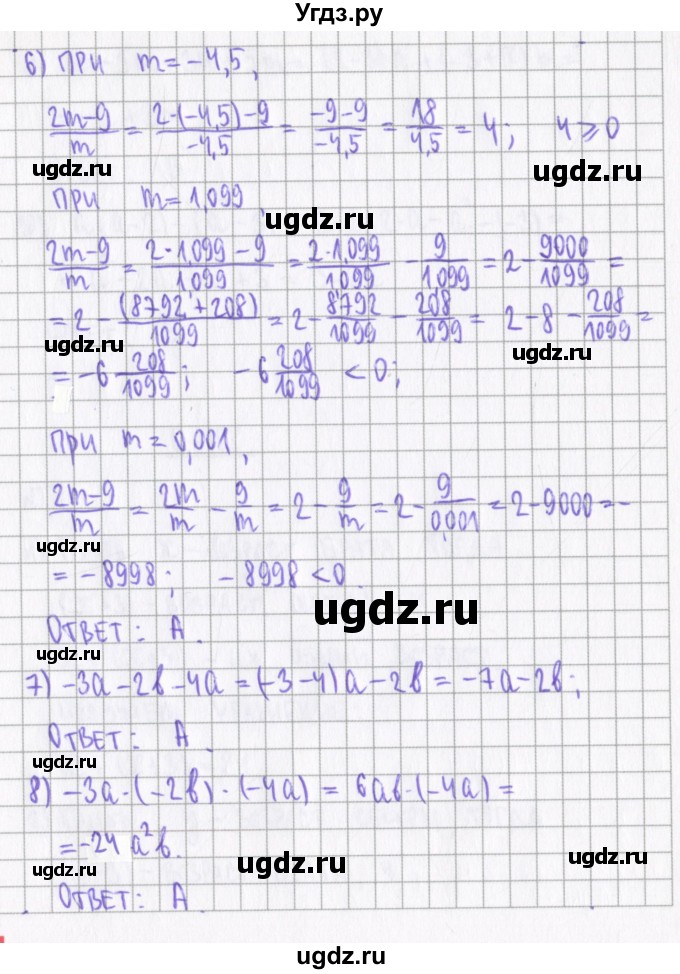 Угдз.ру
6) ПРИ m = -4,5,
(2m-9)/m = (2·(-4,5)-9)/(-4,5) = (-9-9)/(-4,5) = 18/4,5 = 4; 4 ⩾ 0
ugdz.ru ugdz.ru
ПРИ m = 1,099,
ugdz.ru
(2m-9)/m = (2·1,099-9)/1,099 = (2·1,099)/1,099 - 9/1,099 = 2 - 9000/1099 =
= 2 - (8792+208)/1099 = 2 - 8792/1099 - 208/1099 = 2-8- 208/1099 =
ugdz.ru ugdz.ru
= -6 208/1099; -6 208/1099 < 0;
ПРИ m = 0,001,
(2m-9)/m = 2m/m - 9/m = 2 - 9/m = 2 - 9/0,001 = 2-9000 = -
ugdz.ru
= -8998; -8998 < 0.
ugdz.ru
ОТВЕТ: А.
7) -3a-2b-4a = (-3-4)a-2b = -7a-2b;
ОТВЕТ: А.
ugdz.ru
8) -3a·(-2b)·(-4a) = 6ab·(-4a) =
= -24a²b.
ugdz.ru ugdz.ru ugdz.ru
ОТВЕТ: А.
ugdz.ru